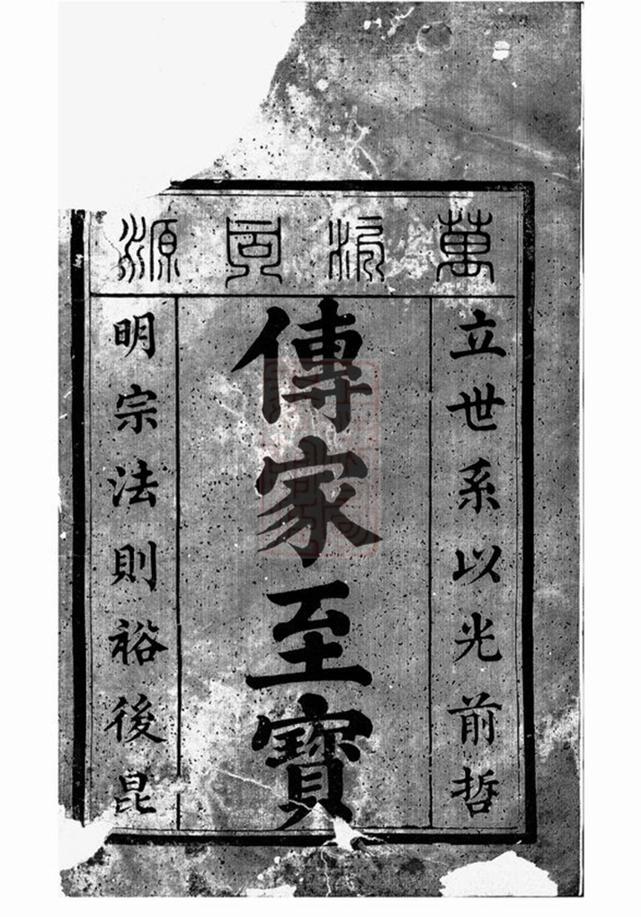 萬派同源
立世系以光前哲
傳家至寶
明宗法則裕後昆